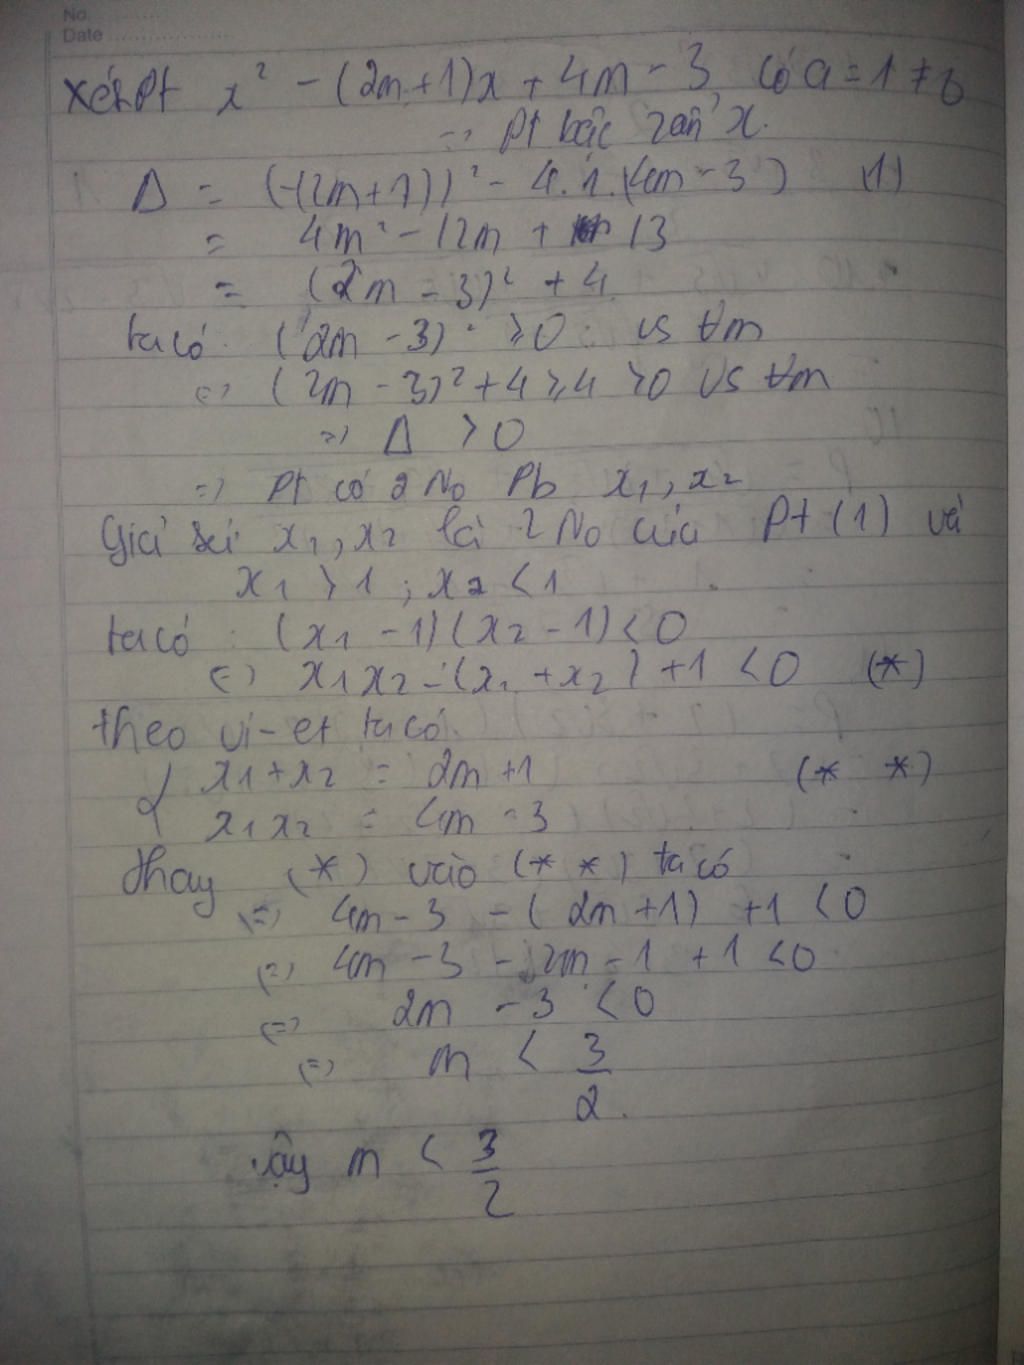 No. ............
Date ....................
Xét Pt x² - (2m+1)x + 4m - 3 có a = 1 ≠ 0
=> Pt bậc 2 ẩn x.
Δ = (-(2m+1))² - 4.1.(4m - 3) (1)
= 4m² - 12m + 13
= (2m - 3)² + 4
ta có: (2m - 3)² ≥ 0 vs ∀m
<=> (2m - 3)² + 4 ≥ 4 > 0 vs ∀m
=> Δ > 0
=> Pt có 2 No Pb x₁, x₂
Giả sử x₁, x₂ là 2 No của Pt (1) và
x₁ > 1 ; x₂ < 1
ta có : (x₁ - 1)(x₂ - 1) < 0
<=> x₁x₂ - (x₁ + x₂) + 1 < 0 (*)
theo vi-et ta có.
{ x₁ + x₂ = 2m + 1 (* *)
x₁x₂ = 4m - 3
thay (*) vào (* *) ta có
<=> 4m - 3 - (2m + 1) + 1 < 0
<=> 4m - 3 - 2m - 1 + 1 < 0
<=> 2m - 3 < 0
<=> m < 3/2.
Vậy m < 3/2